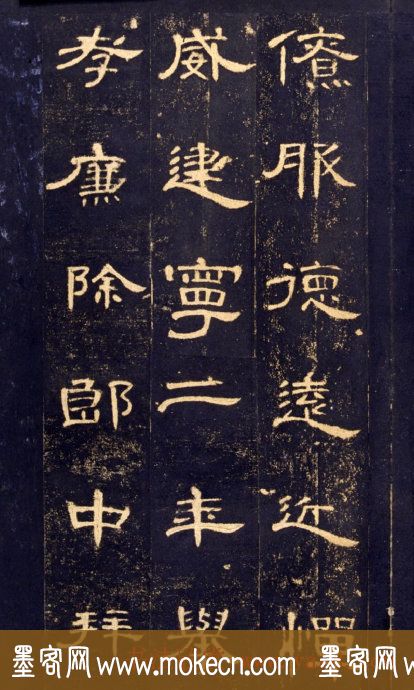 僚服德遠近憚
威建寧二年舉
孝廉除郎中拜
墨客网 www.mokecn.com 墨客网 www